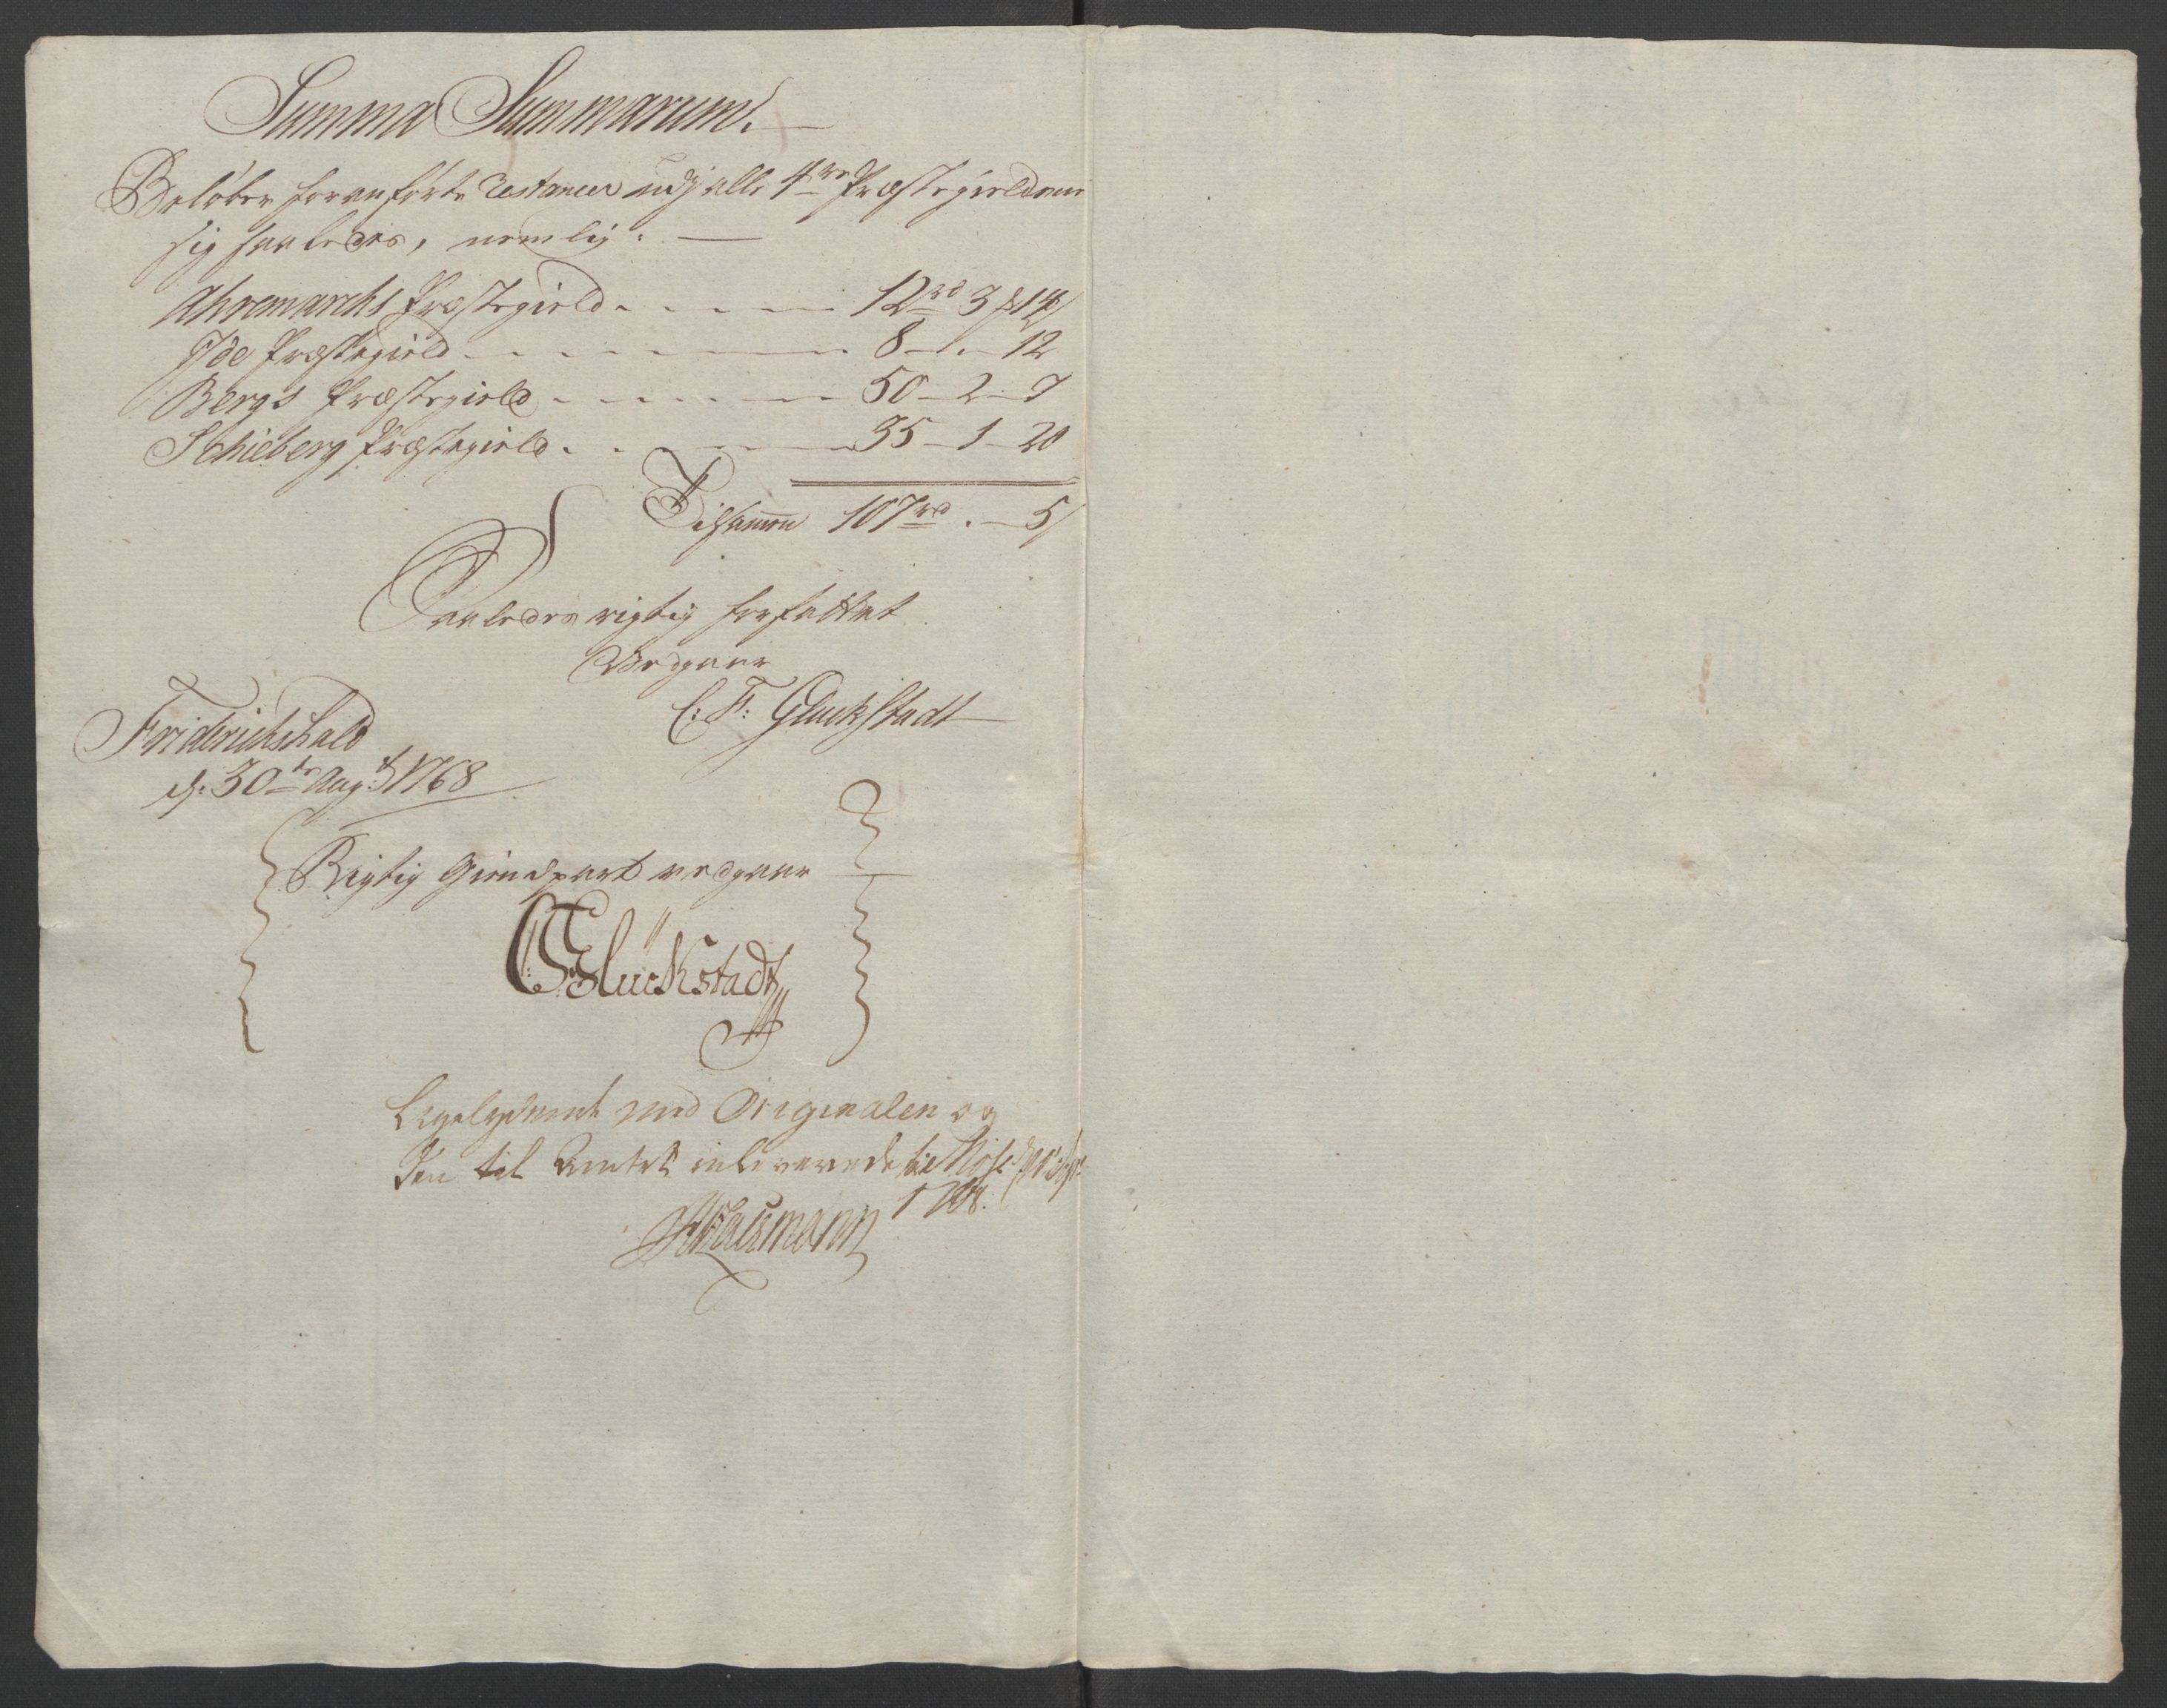 Summa Summarum.
Beløber foranførte Restancer udj alle 4re Præstegieldene
sig saaledes, nemlig.
Ahremarchs Præstegield 12rd 3 14
Ide Præstegield 8 - . - 12
Bergs Præstegield 50 - 2 - 7
Schieberg Præstegield 35 - 1 - 20
Tilsammen 107rd . - 5
Saaledes rigtig forfattet
Vedgaaer
C: F: Gluckstadt
Friderichshald
d: 30te Aug: 1768
Rigtig Gienpart vedgaaer
C:F:Glückstadt
Ligelydende med Originalen og
den til Amtet inleverede
1768.